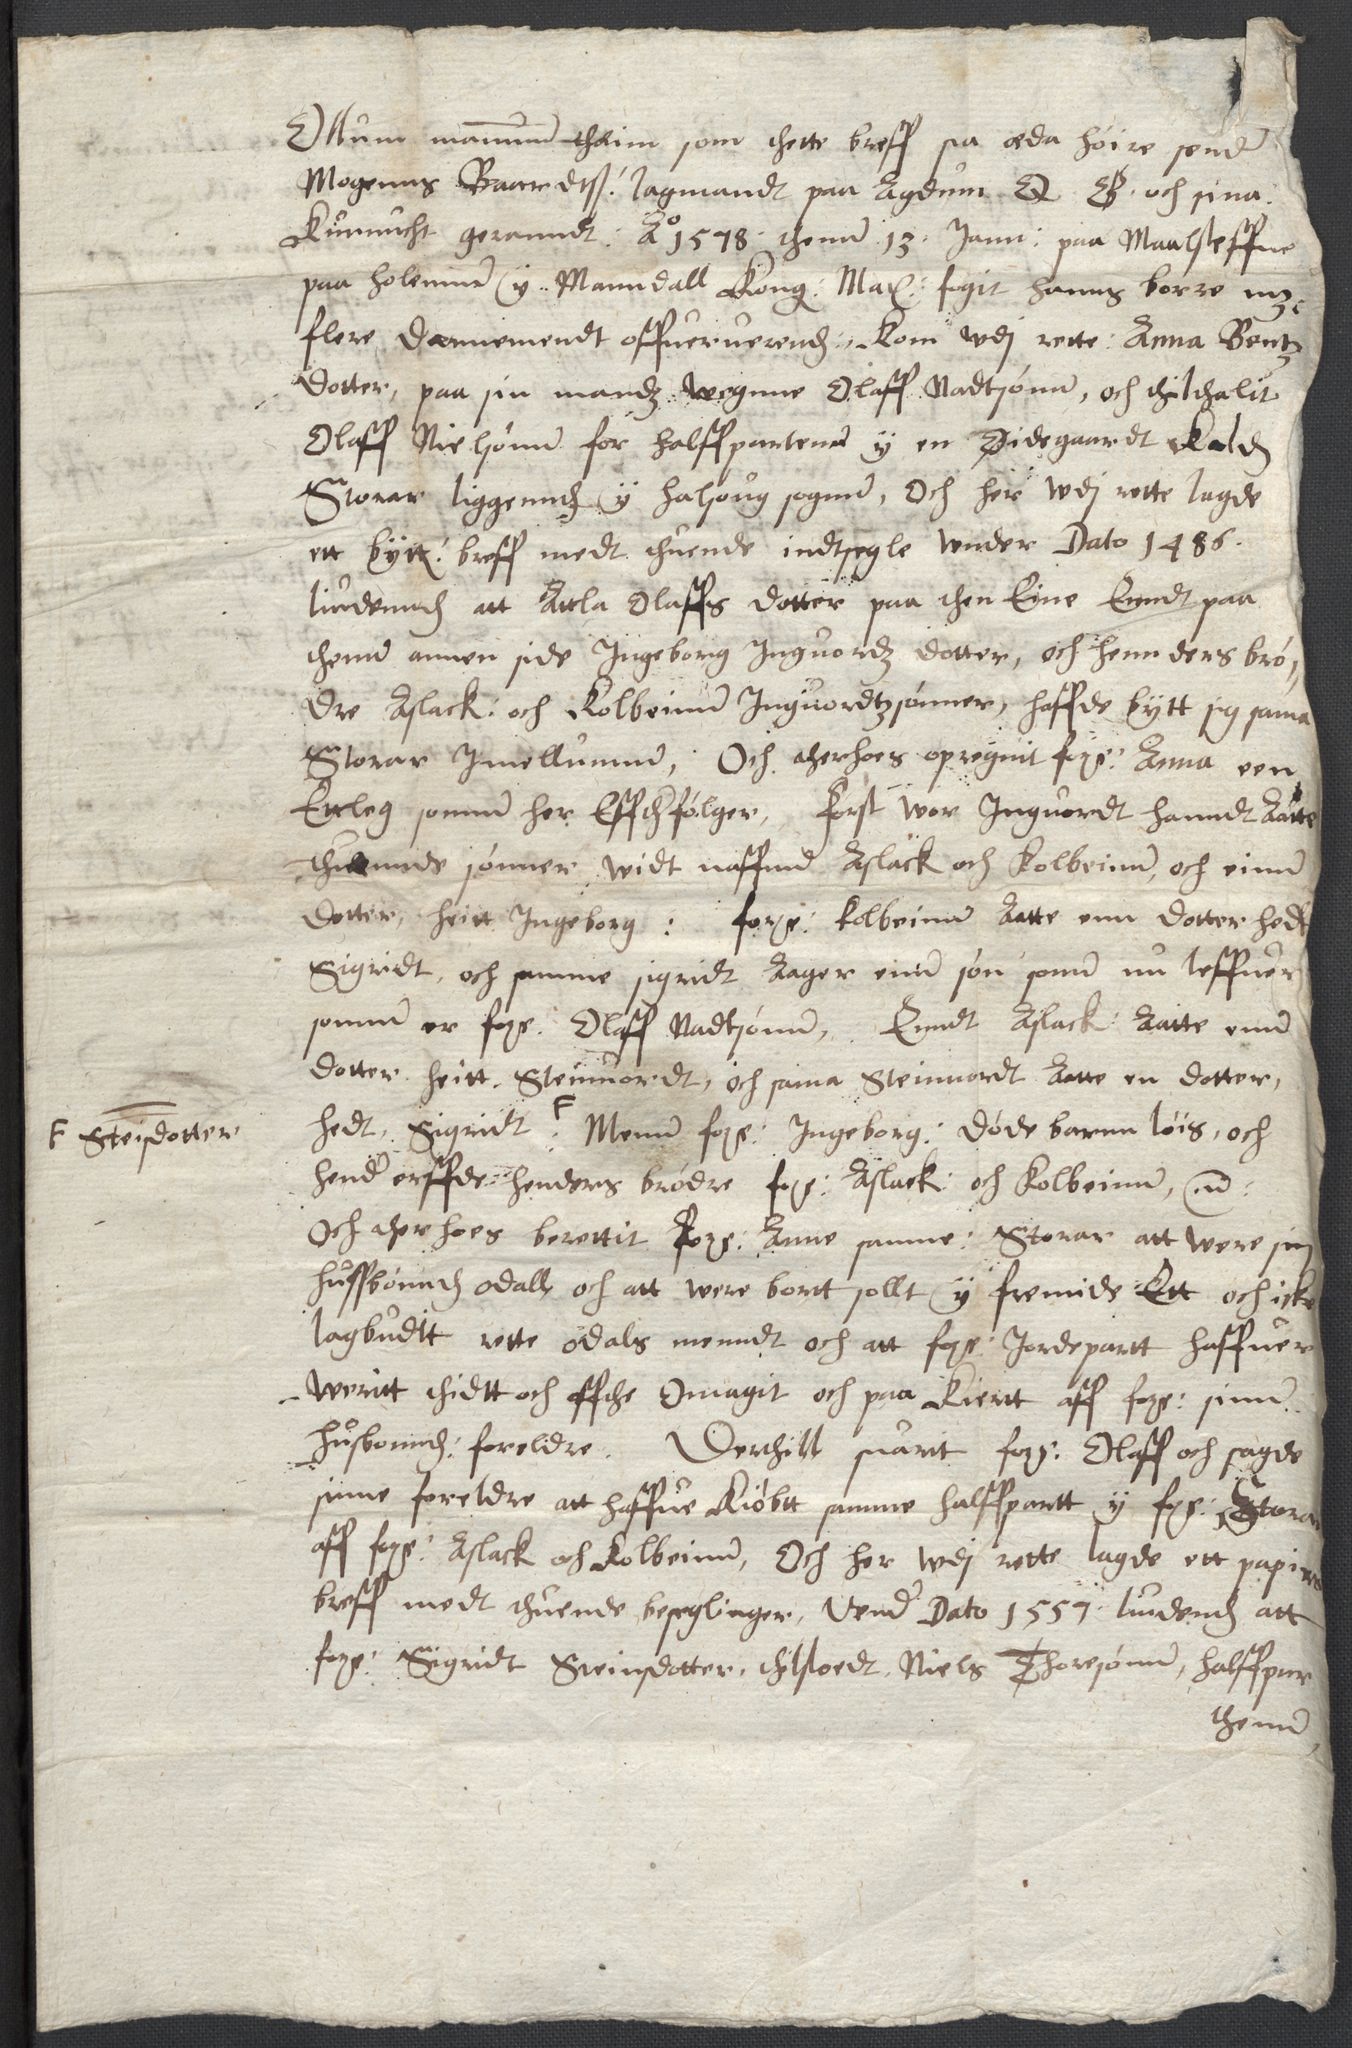 Ollum mannum theim som thette breff sia æda høire sender
Mogenns Baardtß: lagmandt paa Agdum Q G och sina
Kunnucht geranndt: A° 1578 thenn 13 Janu: paa Maalsteffne
paa holemme y Manndall Kong: May: fogit hanns borre
flere dannemendt offueruerend: Kom wdj rette: Anna Bentz
dotter, paa sin mandz wegnne Olaff Nadtsønn, och thilthalit
Olaff Nielsønn for halffpartenn y en Ødegaardt kald
Storar liggennd y halsoug sognn, Och her wdj rette lagde
ett bytt: breff medt thuende indtsegle wnder Dato 1486.
liudennd att Attla Olaffs dotter paa then Eine Enndt paa
thenn annen side Ingeborg Inguordz dotter, och henn ders brø,
dre Aslack: och Kolbeinn Inguordtzsønner, haffde bytt sig sama
Storar Imellumm, Och therhoes opregnit for:ne Anna een
Ettleg somm her Effther følger, Først wor Inguordt hanndt Aatte
thuennde sønner widt naffnn Aslack och Kolbeinn, och einn
dotter, heitt Ingeborg: for:ne: Kolbeinn Aatte enn dotter hedt
Sigridt, och samme sigridt Aager einn søn somm nu leffuer
somm er for:ne Olaff Nadtsønn, Enndt Aslack Aatte enn
dotter heitt. Steinuordt, och sama Steinuordt Aatte en dotter,
hedt, Sigridt F Menn for:ne: Ingeborg: døde barnn løis, och
F Steisdotter
hend erffde henders brødre for:ne: Aslack och Kolbeinn,
Och therhoes berettit for:ne: Anne samme: Storar att were sin
hussbonnd odall och att were bortt sollt y fremide Ett och icke
lagbudtt rette odals menndt och att for:ne Jordepartt haffuer
weritt thidtt och offthe Omagit och paa Kiertt aff for:ne: sinn
husbonnd: foreldre. Derthill suarit for:ne: Olaff och sagde
sinne foreldre att haffue Kiøbtt samme halffpartt y for:ne: Storar
aff for:ne: Aslack och Kolbeinn, Och her wdj rette lagde ett papirs
breff medt thuende beseglinger, Vnder Dato 1557 liudend att
for:ne: Sigridt Steinsdotter, thilstoedt Niels Thoresønn, halffpar
thenn,